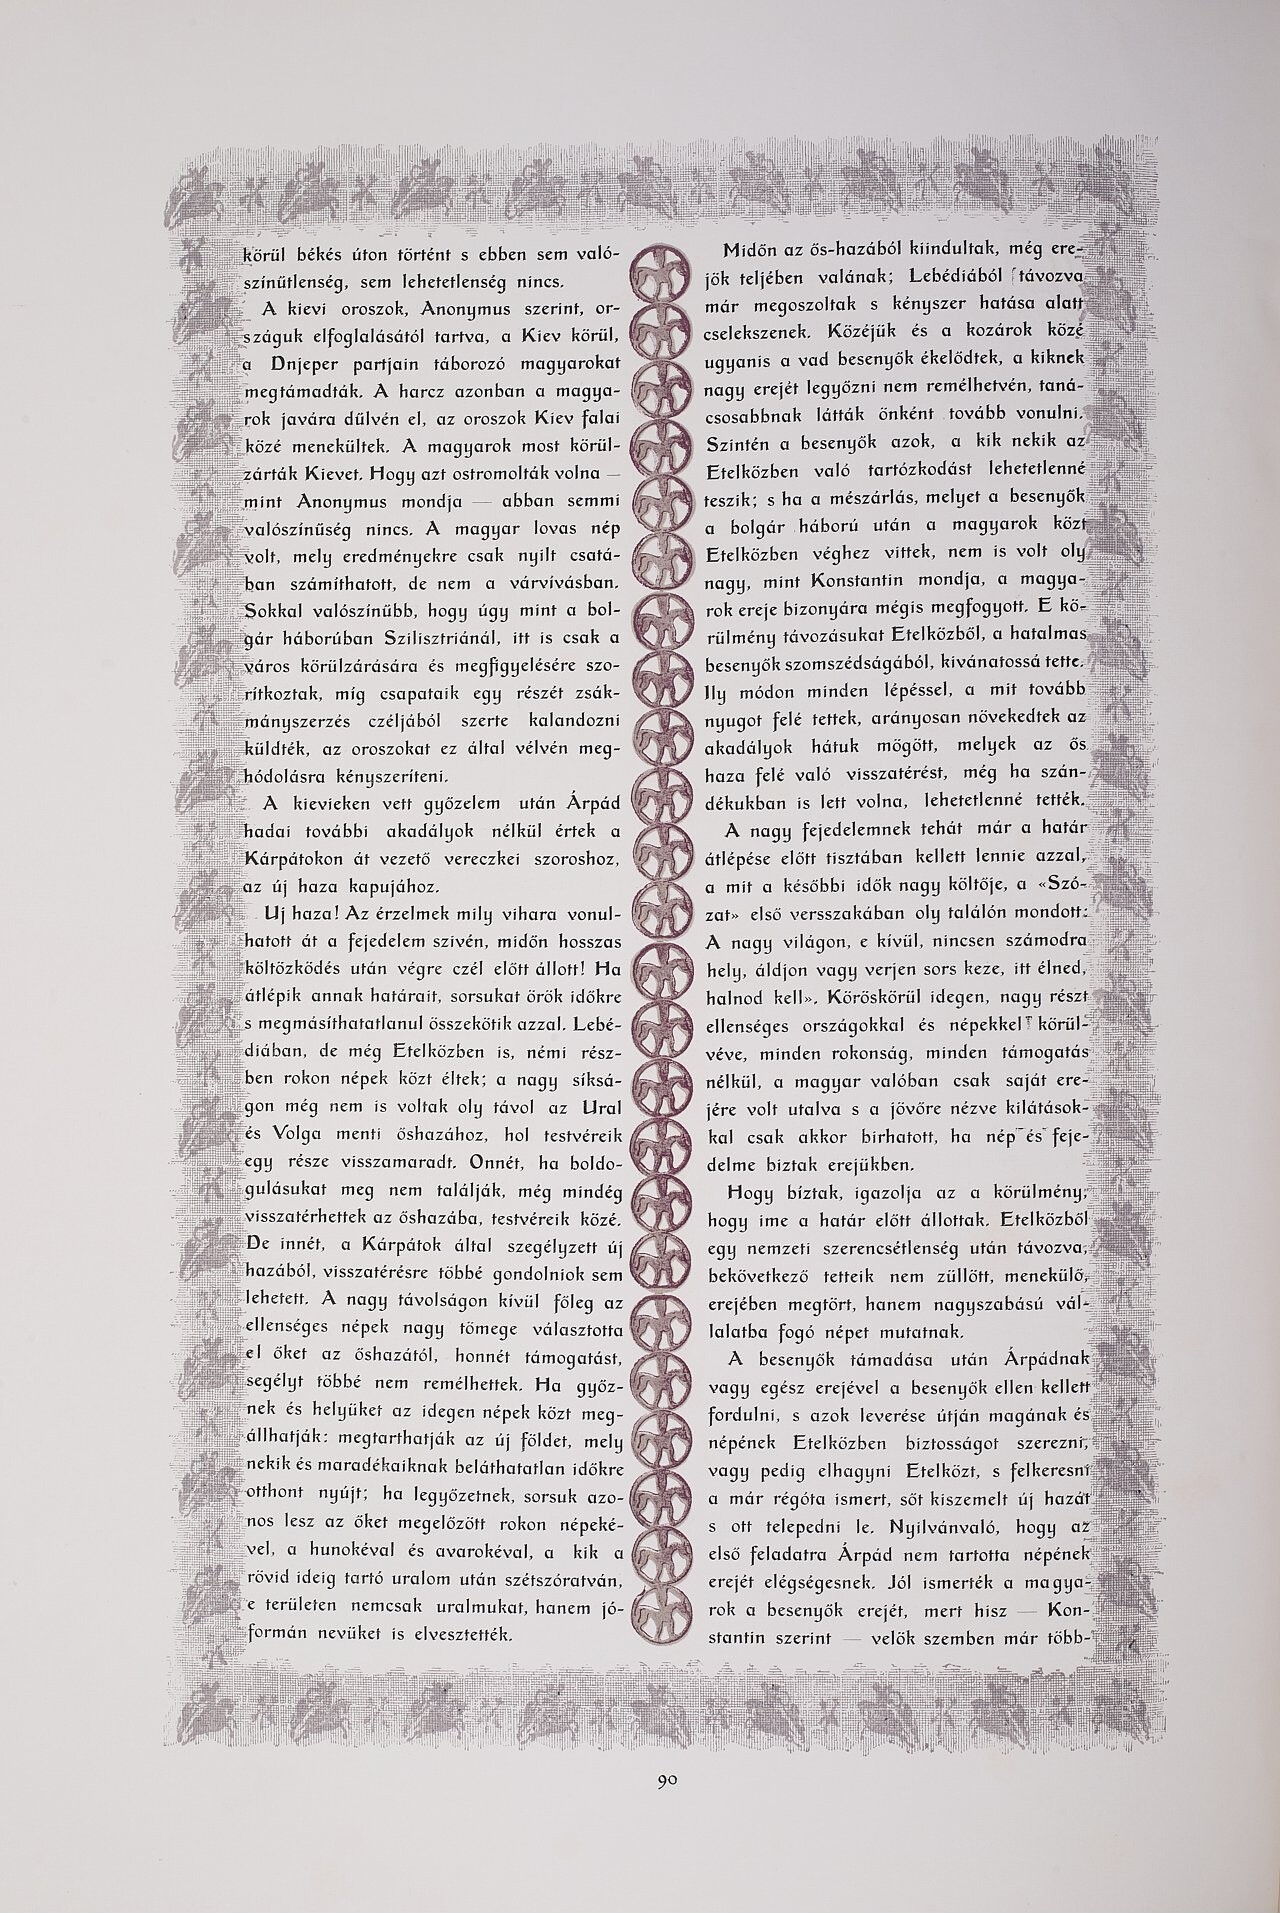 körül békés úton történt s ebben sem való-
színűtlenség, sem lehetetlenség nincs.
A kievi oroszok, Anonymus szerint, or-
száguk elfoglalásától tartva, a Kiev körül,
a Dnjeper partjain táborozó magyarokat
megtámadták. A harcz azonban a magya-
rok javára dűlvén el, az oroszok Kiev falai
közé menekültek. A magyarok most körül-
zárták Kievet. Hogy azt ostromolták volna —
mint Anonymus mondja — abban semmi
valószínűség nincs. A magyar lovas nép
volt, mely eredményekre csak nyílt csatá-
ban számíthatott, de nem a várvívásban.
Sokkal valószínűbb, hogy úgy mint a bol-
gár háborúban Szilisztriánál, itt is csak a
város körülzárására és megfigyelésére szo-
rítkoztak, míg csapataik egy részét zsák-
mányszerzés czéljából szerte kalandozni
küldték, az oroszokat ez által vélvén meg-
hódolásra kényszeríteni.
A kievieken vett győzelem után Árpád
hadai további akadályok nélkül értek a
Kárpátokon át vezető vereczkei szoroshoz,
az új haza kapujához.
Uj haza! Az érzelmek mily vihara vonul-
hatott át a fejedelem szivén, midőn hosszas
költözködés után végre czél előtt állott! Ha
átlépik annak határait, sorsukat örök időkre
s megmásíthatatlanul összekötik azzal. Lebé-
diában, de még Etelközben is, némi rész-
ben rokon népek közt éltek; a nagy síksá-
gon még nem is voltak oly távol az Ural
és Volga menti őshazához, hol testvéreik
egy része visszamaradt. Onnét, ha boldo-
gulásukat meg nem találják, még mindég
visszatérhettek az őshazába, testvéreik közé.
De innét, a Kárpátok által szegélyzett új
hazából, visszatérésre többé gondolniok sem
lehetett. A nagy távolságon kívül főleg az
ellenséges népek nagy tömege választotta
el őket az őshazától, honnét támogatást,
segélyt többé nem remélhettek. Ha győz-
nek és helyüket az idegen népek közt meg-
állhatják: megtarthatják az új földet, mely
nekik és maradékaiknak beláthatatlan időkre
otthont nyújt; ha legyőzetnek, sorsuk azo-
nos lesz az őket megelőzött rokon népeké-
vel, a hunokéval és avarokéval, a kik a
rövid ideig tartó uralom után szétszóratván,
e területen nemcsak uralmukat, hanem jó-
formán nevüket is elvesztették.
Midőn az ős-hazából kiindultak, még ere-
jök teljében valának; Lebédiából távozva
már megoszoltak s kényszer hatása alatt
cselekszenek. Közéjük és a kozárok közé
ugyanis a vad besenyők ékelődtek, a kiknek
nagy erejét legyőzni nem remélhetvén, taná-
csosabbnak látták önként tovább vonulni.
Szintén a besenyők azok, a kik nekik az
Etelközben való tartózkodást lehetetlenné
teszik; s ha a mészárlás, melyet a besenyők
a bolgár háború után a magyarok közt
Etelközben véghez vittek, nem is volt oly
nagy, mint Konstantin mondja, a magya-
rok ereje bizonyára mégis megfogyott. E kö-
rülmény távozásukat Etelközből, a hatalmas
besenyők szomszédságából, kivánatossá tette.
Ily módon minden lépéssel, a mit tovább
nyugot felé tettek, arányosan növekedtek az
akadályok hátuk mögött, melyek az ős
haza felé való visszatérést, még ha szán-
dékukban is lett volna, lehetetlenné tették.
A nagy fejedelemnek tehát már a határ
átlépése előtt tisztában kellett lennie azzal,
a mit a későbbi idők nagy költője, a «Szó-
zat» első versszakában oly találón mondott:
A nagy világon, e kívül, nincsen számodra
hely, áldjon vagy verjen sors keze, itt élned,
halnod kell». Köröskörül idegen, nagy részt
ellenséges országokkal és népekkel körül-
véve, minden rokonság, minden támogatás
nélkül, a magyar valóban csak saját ere-
jére volt utalva s a jövőre nézve kilátások-
kal csak akkor birhatott, ha nép és feje-
delme biztak erejükben.
Hogy bíztak, igazolja az a körülmény,
hogy ime a határ előtt állottak. Etelközből
egy nemzeti szerencsétlenség után távozva,
bekövetkező tetteik nem züllött, menekülő,
erejében megtört, hanem nagyszabású vál-
lalatba fogó népet mutatnak.
A besenyők támadása után Árpádnak
vagy egész erejével a besenyők ellen kellett
fordulni, s azok leverése útján magának és
népének Etelközben biztosságot szerezni,
vagy pedig elhagyni Etelközt, s felkeresni
a már régóta ismert, sőt kiszemelt új hazát
s ott telepedni le. Nyilvánvaló, hogy az
első feladatra Árpád nem tartotta népének
erejét elégségesnek. Jól ismerték a magya-
rok a besenyők erejét, mert hisz — Kon-
stantin szerint — velök szemben már több-
90